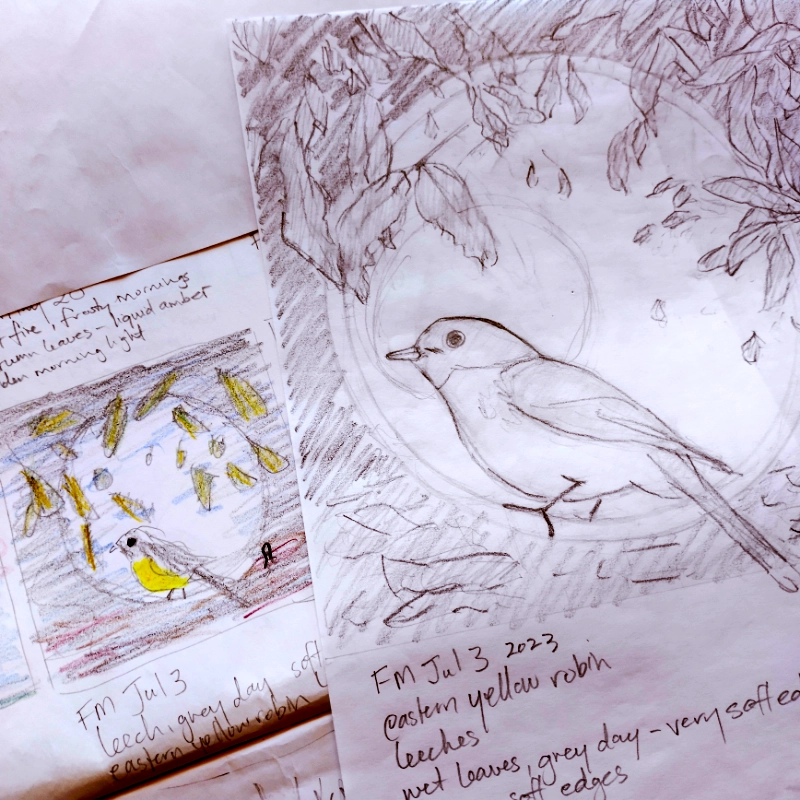 20
fire, frosty mornings
leaves - liquid amber
morning light
FM Jul 3
leech, grey day soft
eastern yellow robin
FM Jul 3 2023
eastern yellow robin
leeches
wet leaves, grey day - very soft ed
soft edges